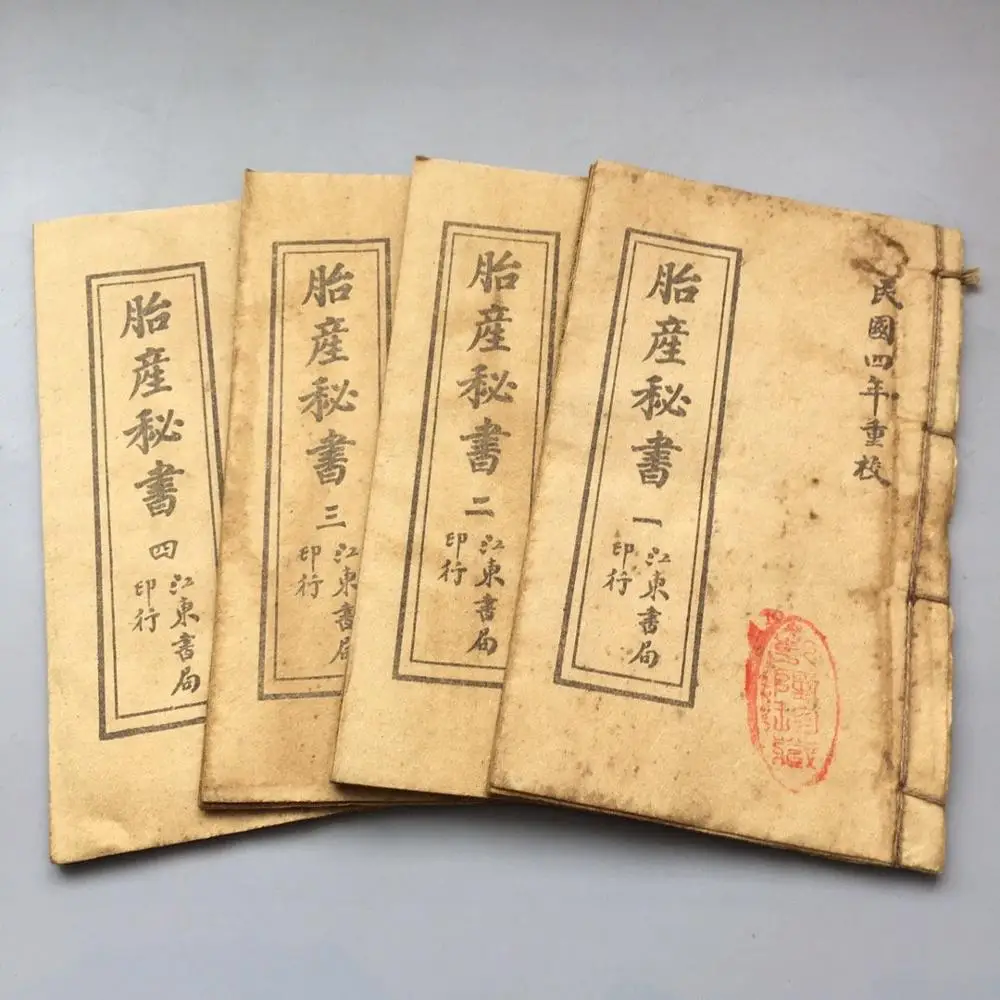 民國四年重校
胎産秘書 一
江東書局
印行
胎産秘書 二
江東書局
印行
胎産秘書 三
江東書局
印行
胎産秘書 四
江東書局
印行